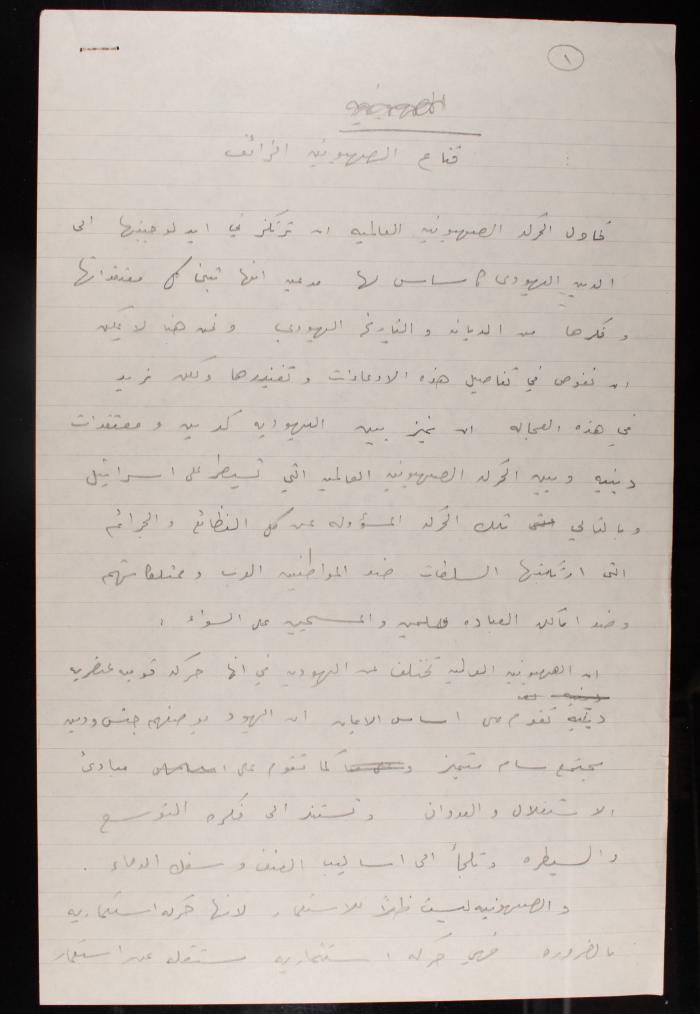 ١
الصهيونيه
قناع الصهيونيه الزائف
تحاول الحركه الصهيونيه العالميه ان ترتكز في ايدلوجيتها الى
الدين اليهودى كأساس لها مدعين انها تبني كل معتقداتها
و فكرها من الديانه و التاريخ اليهودي و نحن هنا لا يمكن
ان نخوض في تفاصيل هذه الادعاءات و تفنيدها ولكن نريد
في هذه العجاله ان نميز بين اليهوديه كدين و معتقدات
دينيه و بين الحركه الصهيونيه العالميه التي تسيطر على اسرائيل
و بالتالي تلك الحركه المسؤوله عن كل الفظائع و الجرائم
التى ارتكبتها السلطات ضد المواطنين العرب و ممتلكاتهم
و ضد اماكن العباده مسلمين والمسيحين على السواء .
ان الصهيونيه العالميه تختلف عن اليهوديه في انها حركه قوميه عنصريه
دينيه تقوم على اساس الايمان ان اليهود بوصفهم جنس ودين
مجتمع سام متميز كما تقوم على مبادئ
الاستغلال و العدوان و تستند الى فكره التوسع
والسيطره و تلجأ الى اساليب العنف و سفك الدماء .
و الصهيونيه ليست للاستعمار لانها حركه استعماريه
بالضروره فهي حركه استعماريه مستقله عن استعمار